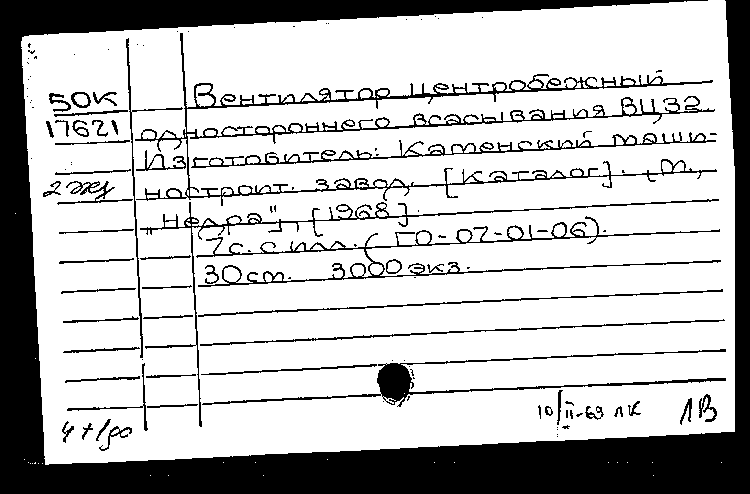 50К
17621
Вентилятор центробежный
одностороннего всасывания ВЦ32.
Изготовитель: Каменский маши-
2 экз
ностроит. завод. [Каталог]. М.,
"Недра", [1968].
7 с. с илл. (ГО-07-01-06).
30 см. 3000 экз.
10/II-69 ЛК
ЛВ